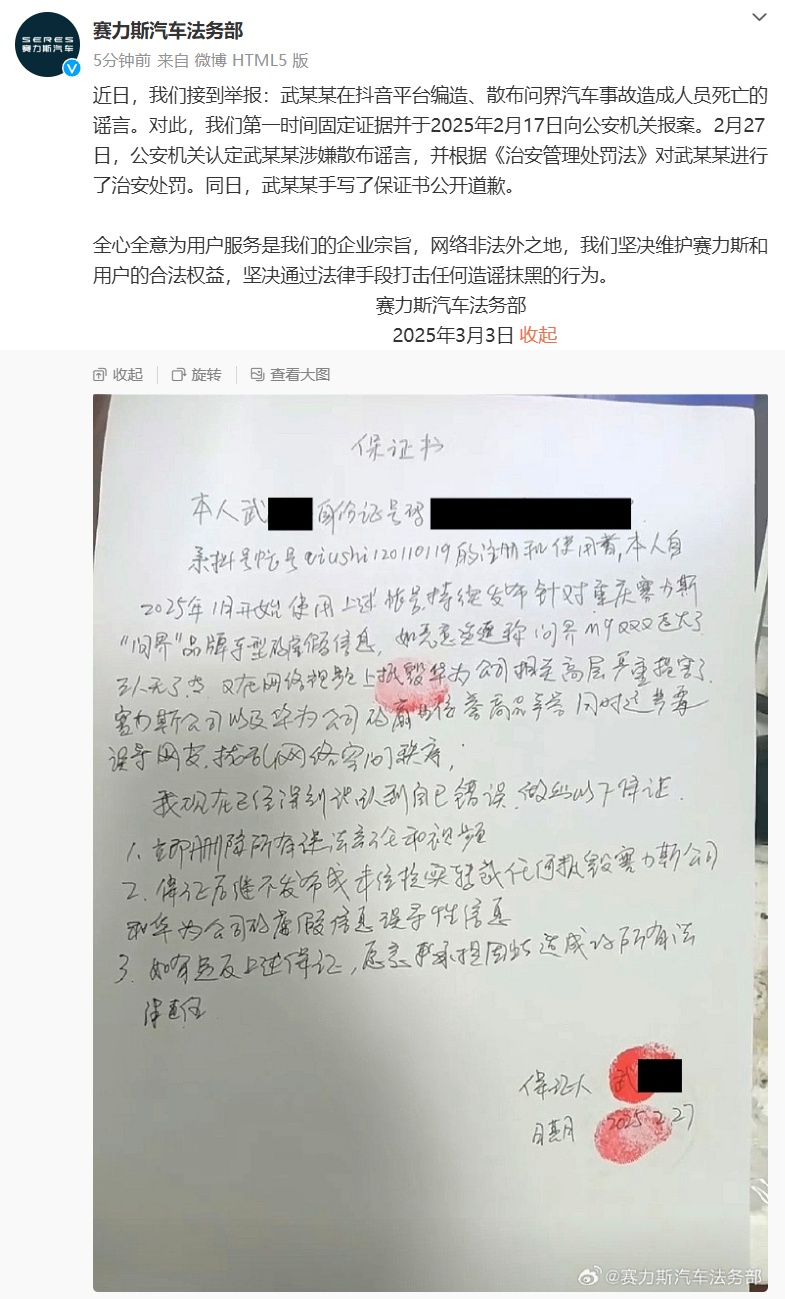 SERES
赛力斯汽车
赛力斯汽车法务部
5分钟前 来自 微博 HTML5 版
近日，我们接到举报：武某某在抖音平台编造、散布问界汽车事故造成人员死亡的
谣言。对此，我们第一时间固定证据并于2025年2月17日向公安机关报案。2月27
日，公安机关认定武某某涉嫌散布谣言，并根据《治安管理处罚法》对武某某进行
了治安处罚。同日，武某某手写了保证书公开道歉。
全心全意为用户服务是我们的企业宗旨，网络非法外之地，我们坚决维护赛力斯和
用户的合法权益，坚决通过法律手段打击任何造谣抹黑的行为。
赛力斯汽车法务部
2025年3月3日 收起
收起 旋转 查看大图
保证书
本人武 身份证号码
系抖号帐号qiushi120110119的注册和使用者,本人自
2025年1月开始使用上述帐号,持续发布针对重庆赛力斯
"问界"品牌车型的虚假信息, 如恶意造谣称问界M9 走大了
三人无了, 又在网络视频上抵毁华为公司相关高层严重损害了
赛力斯公司以及华为公司的商业信誉商品声誉 同时这
误导网友,扰乱网络空间秩序;
我现在已经深刻认识到自己错误,做出以下保证.
1. 立即删除所有违法言论和视频
2. 保证后续不发布或未经核实转载任何抵毁赛力斯公司
和华为公司的虚假信息误导性信息
3. 如有违反上述保证,愿意承担因此造成的所有法
律责任
保证人 武
日期 2025.2.27
@赛力斯汽车法务部